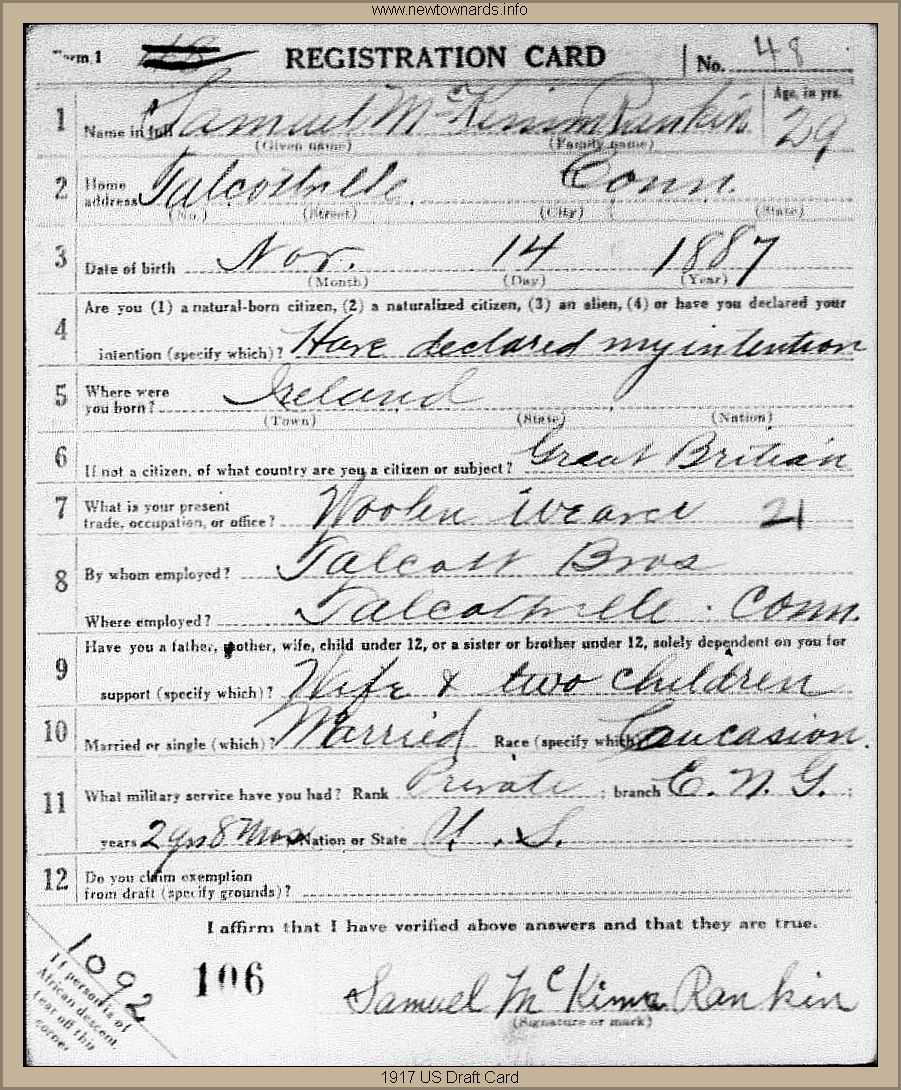 www.newtownards.info
Form 1 REGISTRATION CARD No. 48
1 Name in full Samuel McKimm Rankin Age, in yrs. 29
(Given name) (Family name)
2 Home address Talcottville Conn.
(No.) (Street) (City) (State)
3 Date of birth Nov. 14 1887
(Month) (Day) (Year)
4 Are you (1) a natural-born citizen, (2) a naturalized citizen, (3) an alien, (4) or have you declared your
intention (specify which)? Have declared my intention
5 Where were you born? Ireland
(Town) (State) (Nation)
6 If not a citizen, of what country are you a citizen or subject? Great Britian
7 What is your present trade, occupation, or office? Woolen weaver 21
8 By whom employed? Talcott Bros
Where employed? Talcottville. Conn.
9 Have you a father, mother, wife, child under 12, or a sister or brother under 12, solely dependent on you for
support (specify which)? Wife & two children
10 Married or single (which)? Married Race (specify which) Caucasion.
11 What military service have you had? Rank Private ; branch C. N. G. ;
years 2 yrs 8 Mos Nation or State U. S.
12 Do you claim exemption from draft (specify grounds)?
I affirm that I have verified above answers and that they are true.
1092
If person is of
African descent,
tear off this
corner
106
Samuel McKimm Rankin
(Signature or mark)
1917 US Draft Card